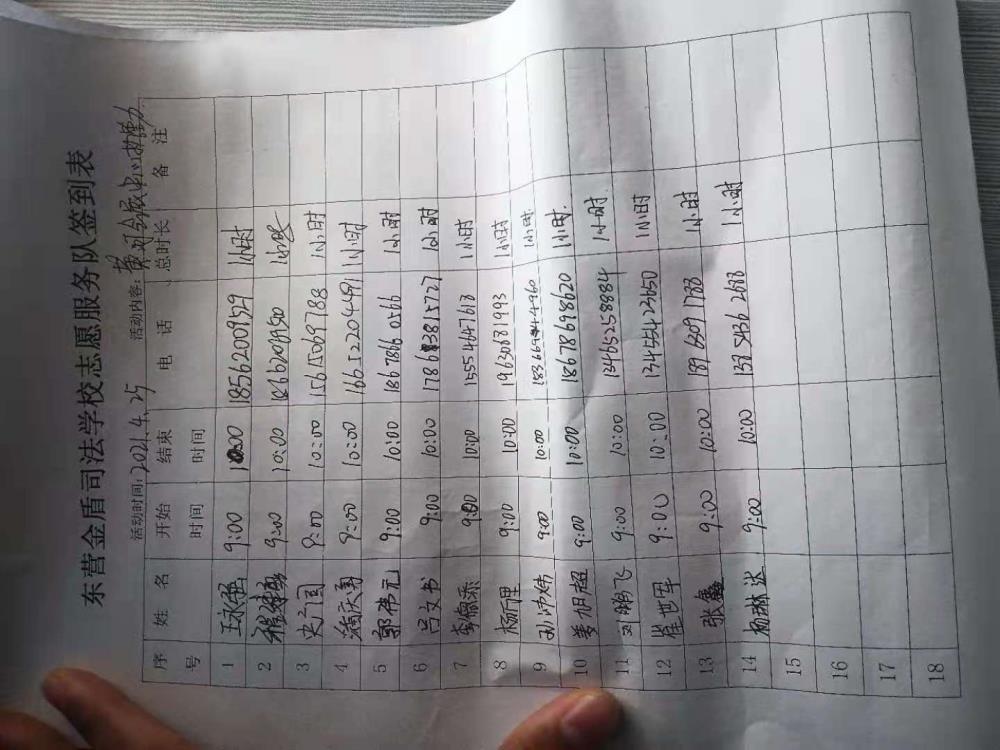 东营金盾司法学校志愿服务队签到表
活动时间:2021.4.25 活动内容:
序号 姓名 开始时间 结束时间 电话 总时长 备注
1 9:00 10:00 18562009529 1小时
2 9:00 10:00 1小时
3 9:00 10:00 15615069788 1小时
4 9:00 10:00 16652204491 1小时
5 郭伟元 9:00 10:00 18678660566 1小时
6 吕文书 9:00 10:00 17863815727 1小时
7 9:00 10:00 15554647613 1小时
8 9:00 10:00 19630831993 1小时
9 9:00 10:00 1小时
10 姜旭超 9:00 10:00 18678698620 1小时
11 刘鹏飞 9:00 10:00 13465258884 1小时
12 崔世军 9:00 10:00 13455423650 1小时
13 张鑫 9:00 10:00 1小时
14 杨琳达 9:00 10:00 1小时
15
16
17
18